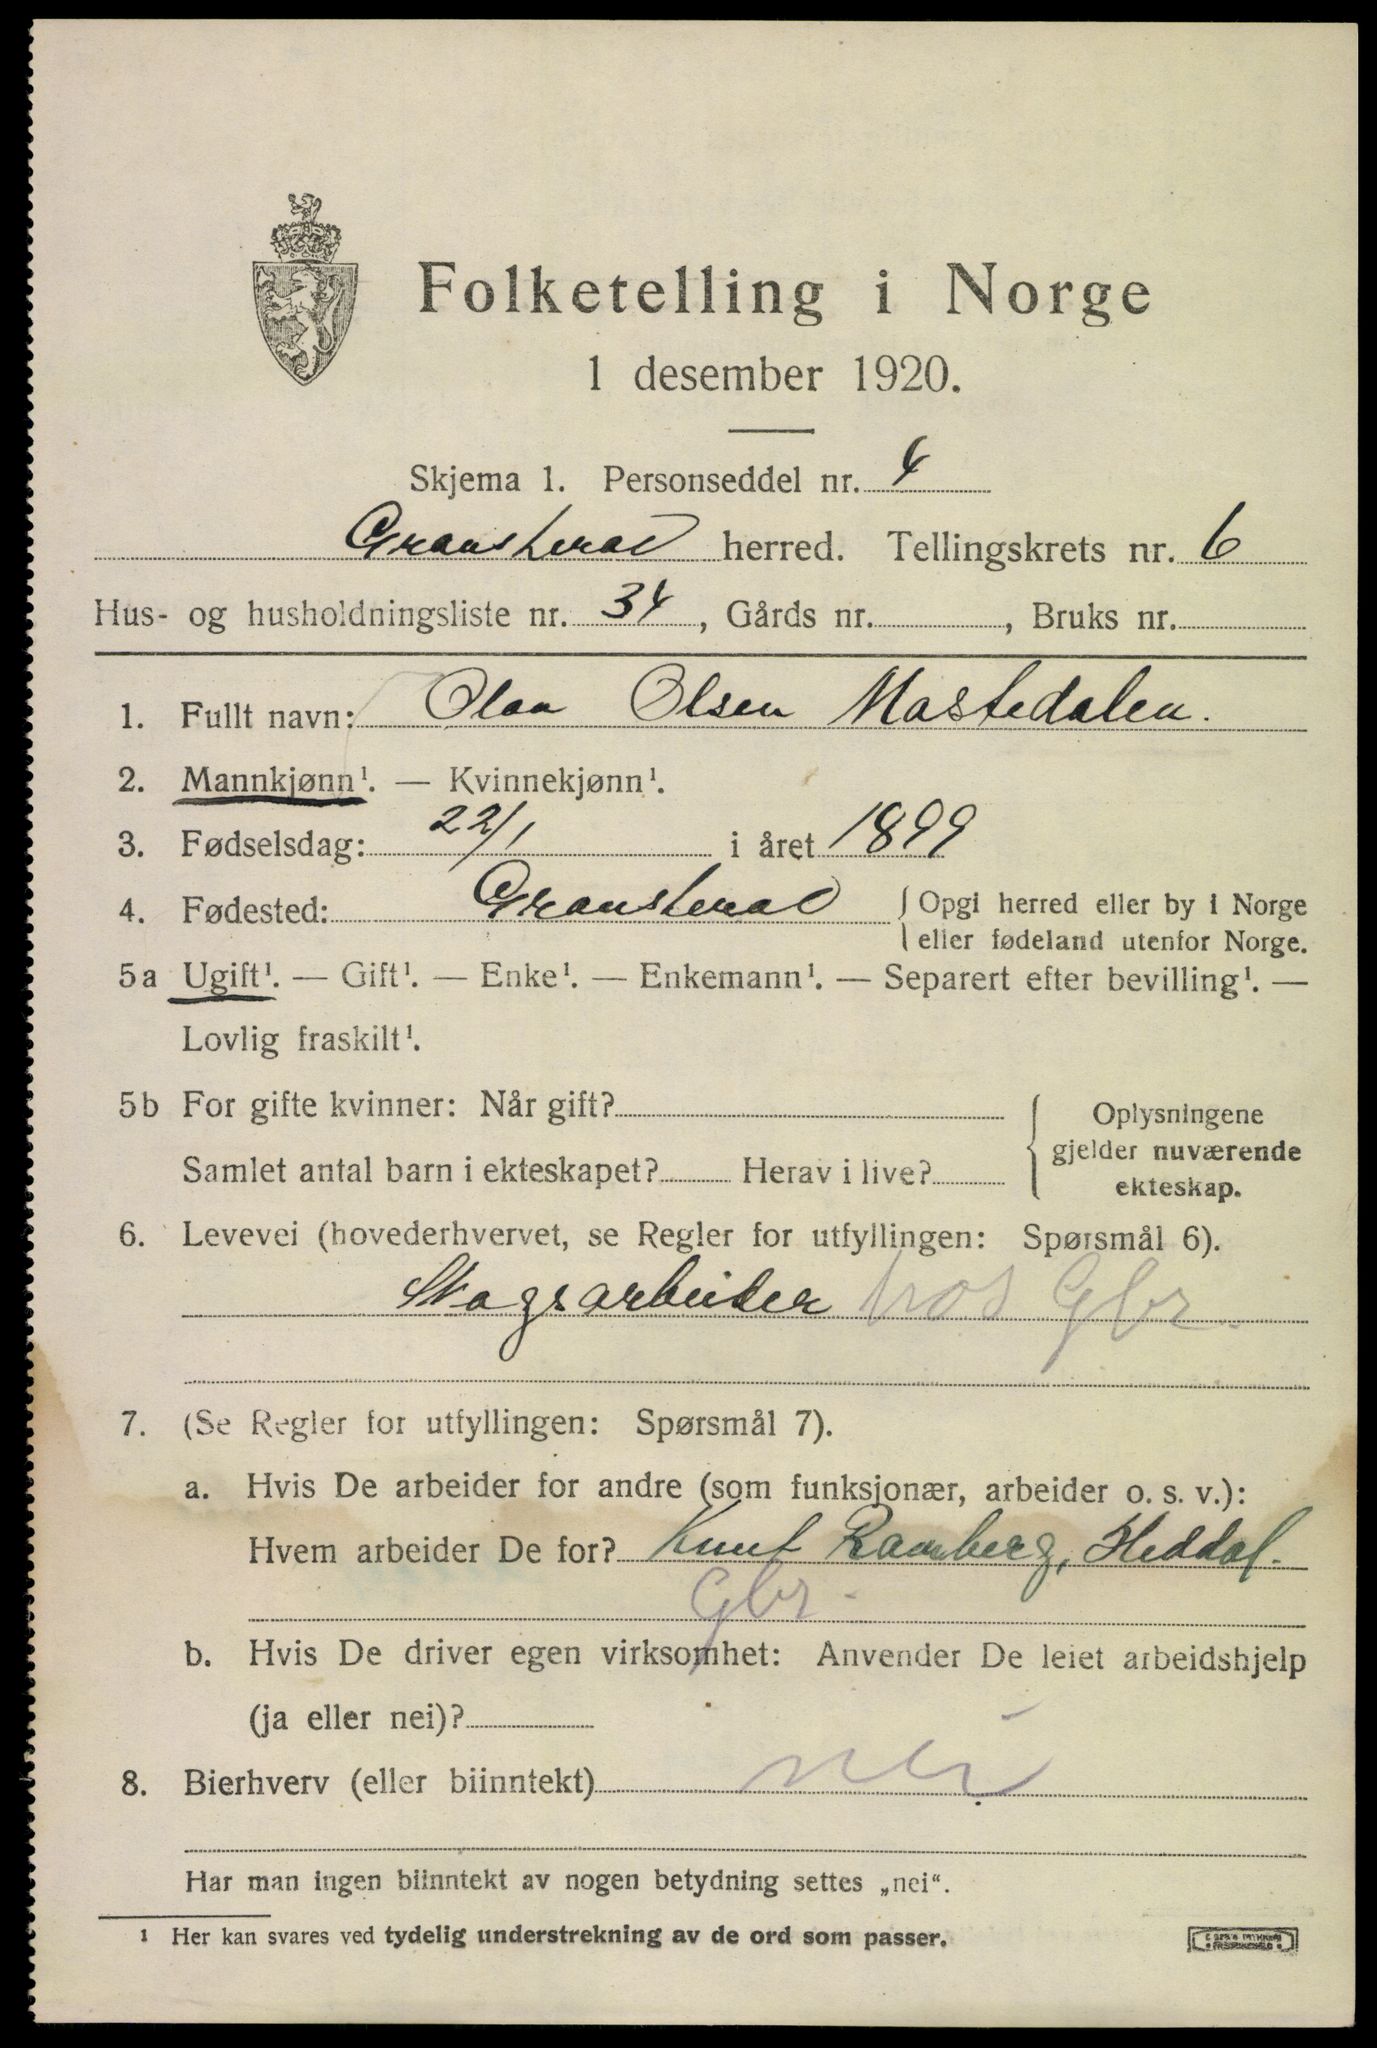 Folketelling i Norge
1 desember 1920.
Skjema 1. Personseddel nr. 4
Gransherad herred. Tellingskrets nr. 6
Hus- og husholdningsliste nr. 34, Gårds nr. , Bruks nr.
1. Fullt navn: Olav Olsen Mastedalen.
2. Mannkjønn¹. — Kvinnekjønn¹.
3. Fødselsdag: 22/1 i året 1899
4. Fødested: Gransherad { Opgi herred eller by i Norge
eller fødeland utenfor Norge.
5a Ugift¹. — Gift¹. — Enke¹. — Enkemann¹. — Separert efter bevilling¹. —
Lovlig fraskilt¹.
5b For gifte kvinner: Når gift?
Samlet antal barn i ekteskapet? Herav i live?
Oplysningene
gjelder nuværende
ekteskap.
6. Levevei (hovederhvervet, se Regler for utfyllingen: Spørsmål 6).
Skogsarbeider hos Gbr.
7. (Se Regler for utfyllingen: Spørsmål 7).
a. Hvis De arbeider for andre (som funksjonær, arbeider o. s. v.):
Hvem arbeider De for? Knut Ramberg, Heddal.
Gbr.
b. Hvis De driver egen virksomhet: Anvender De leiet arbeidshjelp
(ja eller nei)?
8. Bierhverv (eller biinntekt) nei
Har man ingen biinntekt av nogen betydning settes „nei“.
¹ Her kan svares ved tydelig understrekning av de ord som passer.